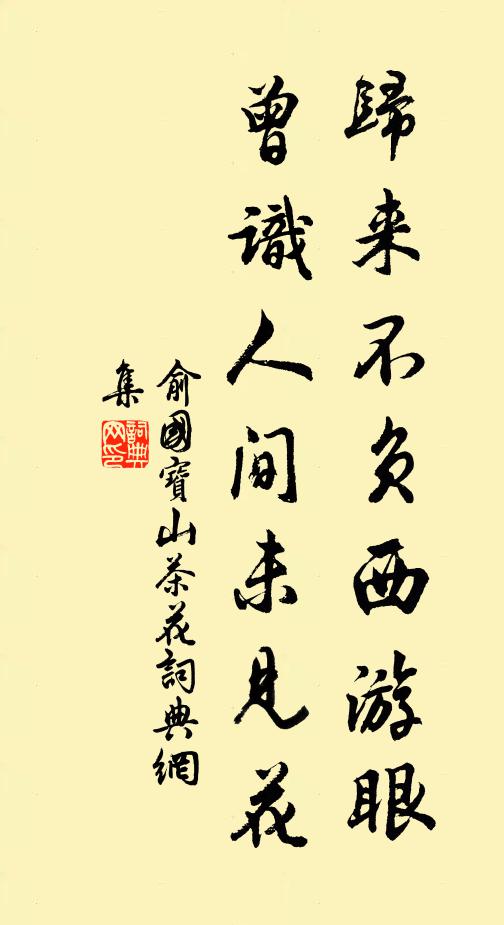 歸来不负西游眼
曾識人间未見花
俞國寶山茶花詞典網
集
詞典
网印